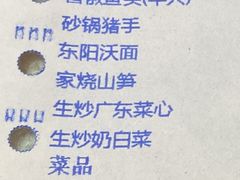 砂锅猪手
东阳沃面
家烧山笋
生炒广东菜心
生炒奶白菜
菜品